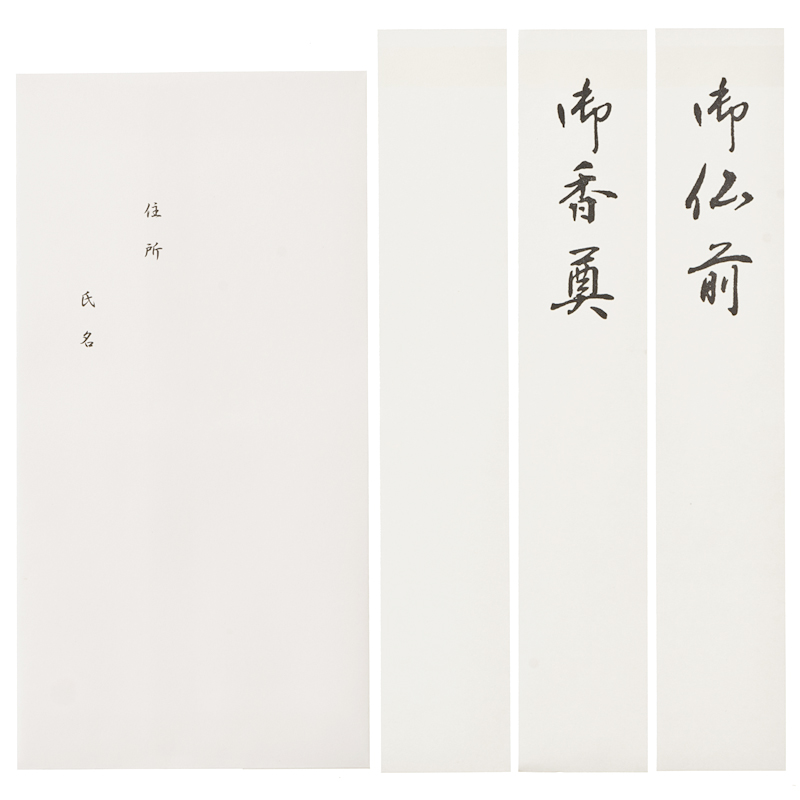 御仏前
御香奠
住所
氏名